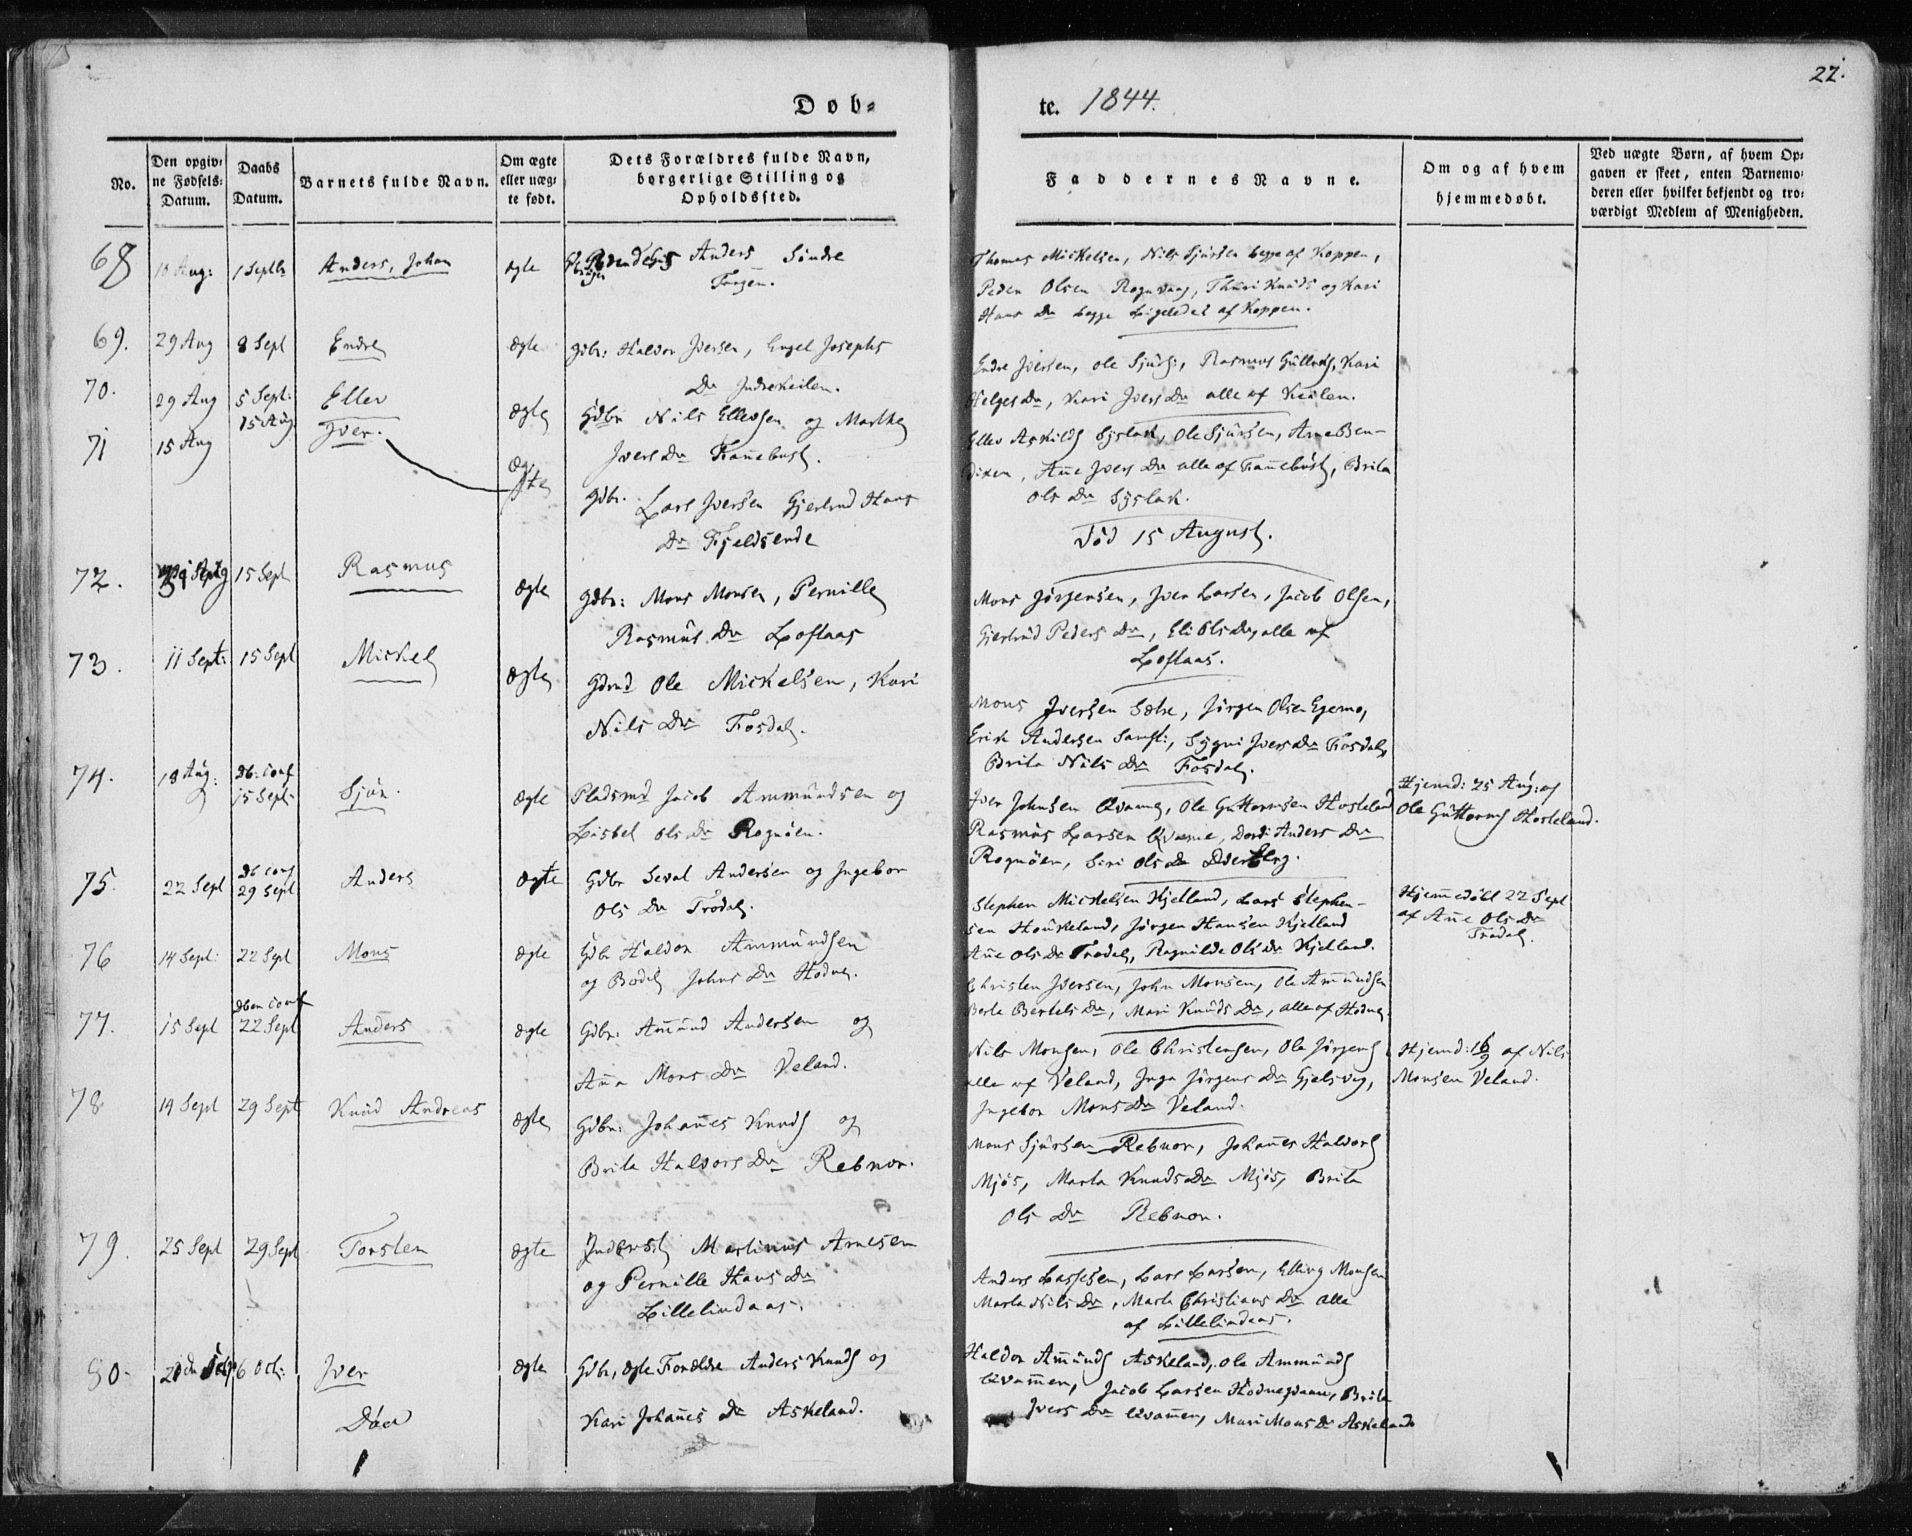 22.
Døb-
te. 1844.
No.
Den opgiv-
ne Fødsels-
Datum.
Daabs
Datum.
Barnets fulde Navn.
Om ægte
eller uæg-
te født.
Dets Forældres fulde Navn,
borgerlige Stilling og
Opholdssted.
Faddernes Navne.
Om og af hvem
hjemmedøbt.
Ved uægte Børn, af hvem Op-
gaven er skeet, enten Barnemo-
deren eller hvilket bekjendt og tro-
værdigt Medlem af Menigheden.
68 18 Aug: 1 Septbr Anders, Johan ægte Anders Søndre
Thomas Mickelsen, Nils Sjursen begge af Koppen,
Peder Olsen Rognvaag, Thuri Knuds og Kari
Hans Dr begge af Koppen.
69. 29 Aug 8 Sept Endre ægte Gdbr: Haldor Iversen, Engel Josephs
Dr Indrekeilen.
Endre Iversen, Ole Sjurds:, Rasmus Gullachs, Kari
Helges Dr, Kari Ivers Dr alle af Keilen.
70. 29 Aug 5 Sept: Ellev ægte Gdbr Nils Ellevsen og Marthe
Ivers Dr Fannebust.
Ellev Askilds Syslak, Ole Sjursen, Arne Ben-
dixen, Anne Ivers Dr alle af Fannebust, Brita
Ols Dr Syslak.
71 15 Aug 15 Aug Iver. ægte Gdbr. Lars Iversen Gjertrud Hans
Dr Fjeldsende
Død 15 August.
72. 15 Sept Rasmus ægte Gdbr: Mons Monsen, Pernille
Rasmus Dr Loftaas
Mons Jørgensen, Iver Larsen, Jacob Olsen,
Gjertrud Peders Dr, Eli Ols Dr, alle af
Loftaas.
73. 11 Sept: 15 Sept Mickel ægte Gdmd Ole Mickelsen, Kari
Nils Dr Fosdal.
Mons Iversen Sætre, Jørgen Olsen Egemo,
Erik Andersen, Sygni Ivers Dr Fosdal,
Brita Nils Dr Fosdal.
74. 18 Aug: Db: conf
15 Sept: Sjur. ægte Pladsmd Jacob Ammundsen og
Lisbet Ols Dr Rognøen.
Iver Johnsen Qvamme, Ole Guttormsen Hosteland
Rasmus Larsen Qvamme, Dordi Anders Dr
Rognøen, Siri Ols Dr
Hjemd: 25 Aug: af
Ole Guttorms Hosteland.
75. 22 Sept Db conf
29 Sept Anders ægte Gdbr Seval Andersen og Ingebor
Ols Dr Trodal.
Stephen Mickelsen Kjelland, Lars Stephen-
sen Houkeland, Jørgen Hansen Kjelland
Anne Ols Dr Trodal, Ragnilde Ols Dr Kjelland.
Hjemmedøbt 22 Sept
af Anne Ols Dr
Trodal.
76 14 Sept: 22 Sept Mons ægte Gdbr Haldor Ammundsen
og Bodel Johns Dr Hodne.
Christen Iversen, John Monsen, Ole Ammundsen
Berte Bertels Dr, Mari Knuds Dr, alle af Hodne.
77. 15 Sept Dben conf
22 Sept Anders ægte Gdbr: Amund Andersen og
Anna Mons Dr Veland.
Nils Monsen, Ole Christensen, Ole Jørgens
alle af Veland, Inga Jørgens Dr Gjelsvig,
Ingebor Mons Dr Veland.
Hjemd: 16/9 af Nils
Monsen Veland.
78 14 Sept 29 Sept Knud Andreas ægte Gdbr: Johannes Knuds og
Brita Halvors Dr Rebnor.
Mons Sjursen Rebnor, Johannes Halvors
Mjøs, Marta Knuds Dr Mjøs, Brita
Ols Dr Rebnor.
79. 25 Sept 29 Sept Torsten ægte Inderst Martinus Arnesen
og Pernille Hans Dr
Lillelindaas.
Anders Lassesen, Lars Larsen, Elling Monsen
Marta Nils Dr, Marta Christians Dr alle
af Lillelindaas.
80. 6 Oct: Iver ægte Gdbr, ægte Forældre Anders Knuds og
Kari Johannes Dr Askeland.
Haldor Amunds Askeland, Ole Ammunds
Qvammen, Jacob Larsen, Brita
Ivers Dr Qvammen, Mari Mons Dr Askeland